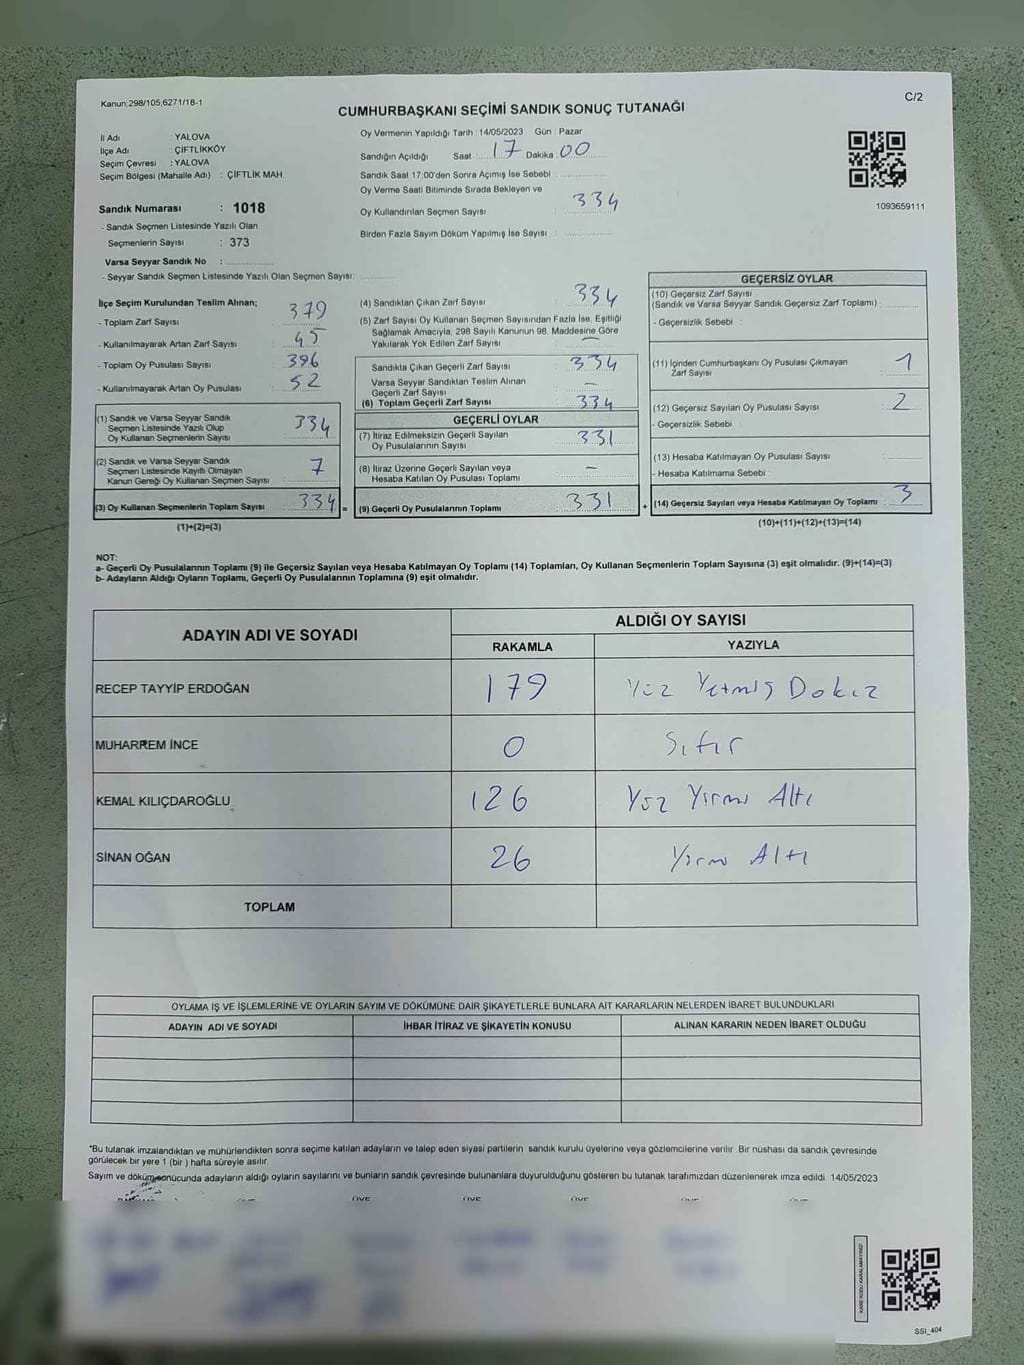 Kanun;298/105;6271/18-1
C/2
CUMHURBAŞKANI SEÇİMİ SANDIK SONUÇ TUTANAĞI
İl Adı : YALOVA
İlçe Adı : ÇİFTLİKKÖY
Seçim Çevresi : YALOVA
Seçim Bölgesi (Mahalle Adı) : ÇİFTLİK MAH.
Sandık Numarası : 1018
- Sandık Seçmen Listesinde Yazılı Olan
Seçmenlerin Sayısı : 373
Varsa Seyyar Sandık No :
- Seyyar Sandık Seçmen Listesinde Yazılı Olan Seçmen Sayısı:
Oy Vermenin Yapıldığı Tarih : 14/05/2023 Gün : Pazar
Sandığın Açıldığı Saat : 17 Dakika : 00
Sandık Saat 17:00'den Sonra Açımış İse Sebebi :
Oy Verme Saati Bitiminde Sırada Bekleyen ve
Oy Kullandırılan Seçmen Sayısı : 334
Birden Fazla Sayım Döküm Yapılmış İse Sayısı :
1093659111
İlçe Seçim Kurulundan Teslim Alınan;
- Toplam Zarf Sayısı : 379
- Kullanılmayarak Artan Zarf Sayısı : 45
- Toplam Oy Pusulası Sayısı : 396
- Kullanılmayarak Artan Oy Pusulası : 52
(1) Sandık ve Varsa Seyyar Sandık
Seçmen Listesinde Yazılı Olup
Oy Kullanan Seçmenlerin Sayısı : 334
(2) Sandık ve Varsa Seyyar Sandık
Seçmen Listesinde Kayıtlı Olmayan
Kanun Gereği Oy Kullanan Seçmen Sayısı : 7
(3) Oy Kullanan Seçmenlerin Toplam Sayısı : 334 =
(1)+(2)=(3)
(4) Sandıktan Çıkan Zarf Sayısı : 334
(5) Zarf Sayısı Oy Kullanan Seçmen Sayısından Fazla İse, Eşitliği
Sağlamak Amacıyla, 298 Sayılı Kanunun 98. Maddesine Göre
Yakılarak Yok Edilen Zarf Sayısı : —
Sandıkta Çıkan Geçerli Zarf Sayısı : 334
Varsa Seyyar Sandıktan Teslim Alınan
Geçerli Zarf Sayısı : —
(6) Toplam Geçerli Zarf Sayısı : 334
GEÇERLİ OYLAR
(7) İtiraz Edilmeksizin Geçerli Sayılan
Oy Pusulalarının Sayısı : 331
(8) İtiraz Üzerine Geçerli Sayılan veya
Hesaba Katılan Oy Pusulası Toplamı : —
(9) Geçerli Oy Pusulalarının Toplamı : 331 +
GEÇERSİZ OYLAR
(10) Geçersiz Zarf Sayısı
(Sandık ve Varsa Seyyar Sandık Geçersiz Zarf Toplamı) :
- Geçersizlik Sebebi :
(11) İçinden Cumhurbaşkanı Oy Pusulası Çıkmayan
Zarf Sayısı : 1
(12) Geçersiz Sayılan Oy Pusulası Sayısı : 2
- Geçersizlik Sebebi :
(13) Hesaba Katılmayan Oy Pusulası Sayısı :
- Hesaba Katılmama Sebebi :
(14) Geçersiz Sayılan veya Hesaba Katılmayan Oy Toplamı : 3
(10)+(11)+(12)+(13)=(14)
NOT:
a- Geçerli Oy Pusulalarının Toplamı (9) ile Geçersiz Sayılan veya Hesaba Katılmayan Oy Toplamı (14) Toplamları, Oy Kullanan Seçmenlerin Toplam Sayısına (3) eşit olmalıdır. (9)+(14)=(3)
b- Adayların Aldığı Oyların Toplamı, Geçerli Oy Pusulalarının Toplamına (9) eşit olmalıdır.
ADAYIN ADI VE SOYADI
ALDIĞI OY SAYISI
RAKAMLA YAZIYLA
RECEP TAYYİP ERDOĞAN 179 Yüz Yetmiş Dokuz
MUHARREM İNCE 0 Sıfır
KEMAL KILIÇDAROĞLU 126 Yüz Yirmi Altı
SİNAN OĞAN 26 Yirmi Altı
TOPLAM
OYLAMA İŞ VE İŞLEMLERİNE VE OYLARIN SAYIM VE DÖKÜMÜNE DAİR ŞİKAYETLERLE BUNLARA AİT KARARLARIN NELERDEN İBARET BULUNDUKLARI
ADAYIN ADI VE SOYADI İHBAR İTİRAZ VE ŞİKAYETİN KONUSU ALINAN KARARIN NEDEN İBARET OLDUĞU
*Bu tutanak imzalandıktan ve mühürlendikten sonra seçime katılan adayların ve talep eden siyasi partilerin sandık kurulu üyelerine veya gözlemcilerine verilir. Bir nüshası da sandık çevresinde
görülecek bir yere 1 (bir) hafta süreyle asılır.
Sayım ve döküm sonucunda adayların aldığı oyların sayılarını ve bunların sandık çevresinde bulunanlara duyurulduğunu gösteren bu tutanak tarafımızdan düzenlenerek imza edildi. 14/05/2023
KARE KODU KARALAMAYINIZ!
SSI_404